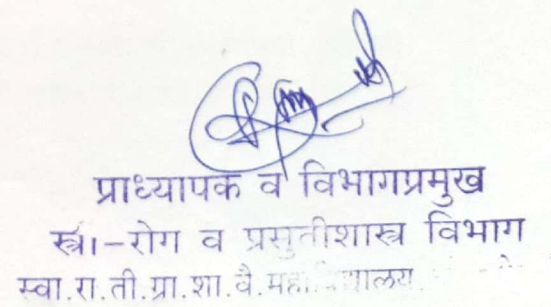 प्राध्यापक व विभागप्रमुख
स्त्री-रोग व प्रसुतीशास्त्र विभाग
स्वा.रा.ती.ग्रा.शा.वै.